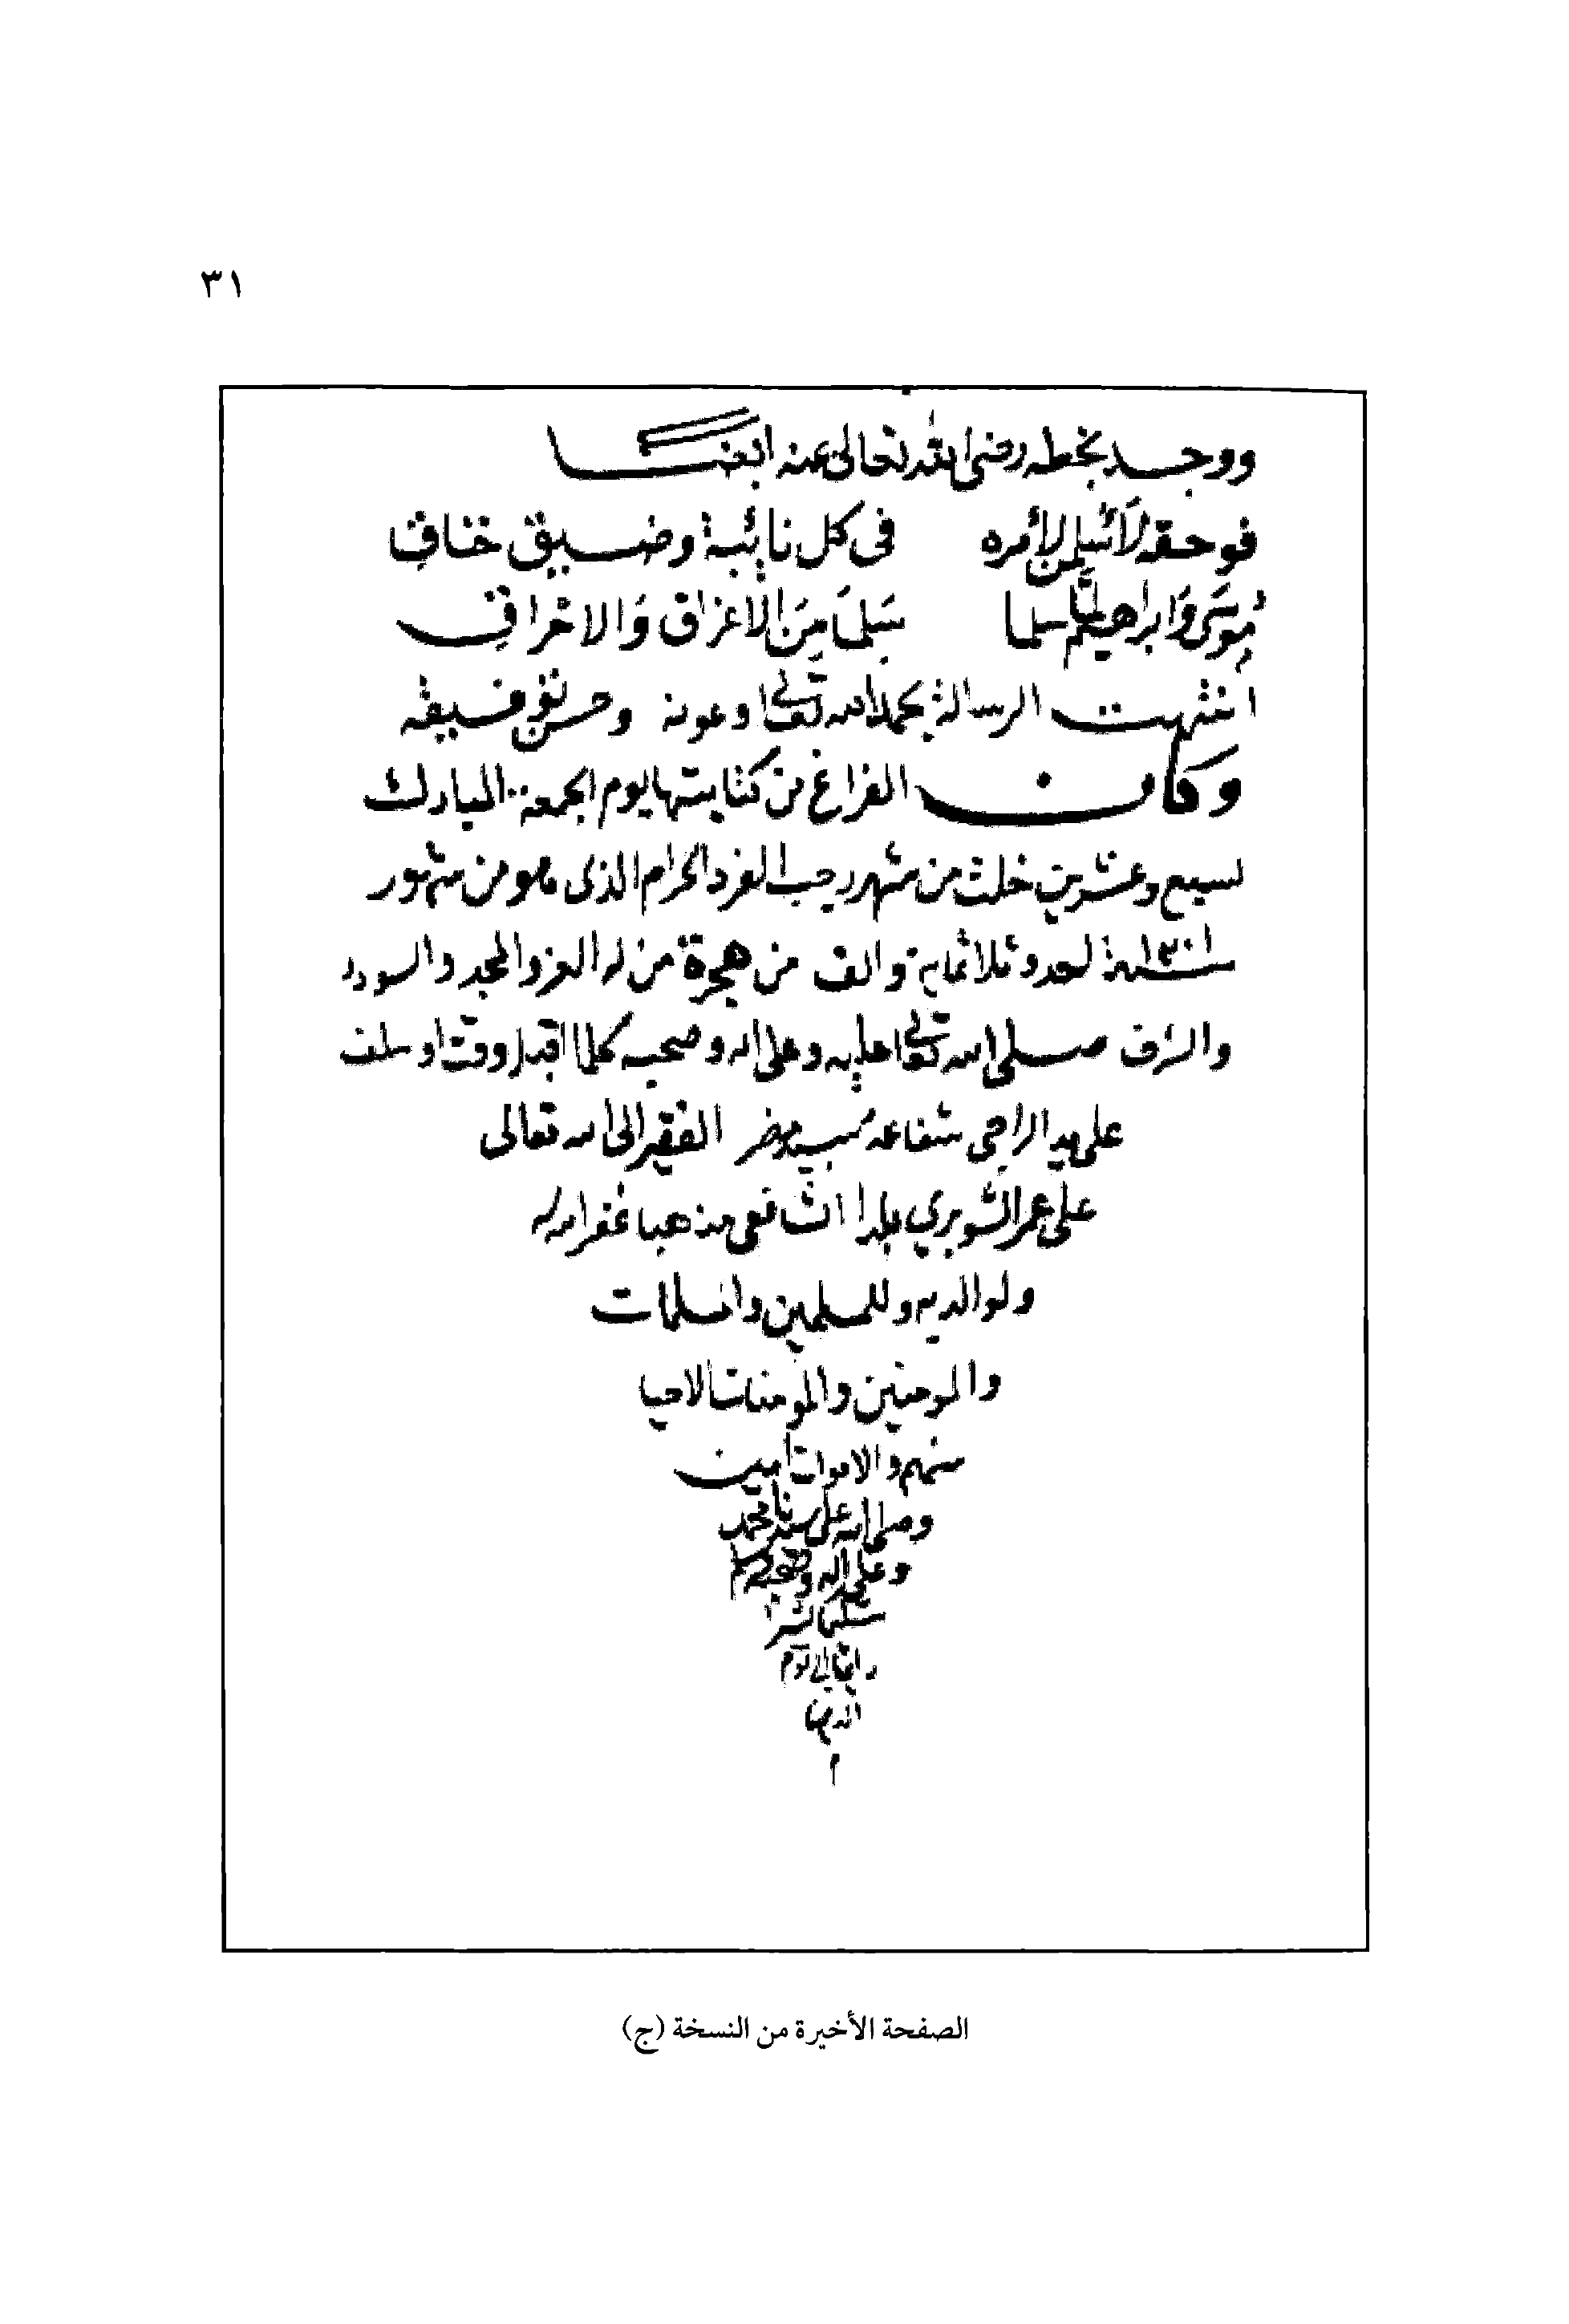 ٣١
ووجد بخطه رضي الله تعالى عنه ايضا
فوحقه لأسلمن لأمره في كل نائبة وضيق خناق
مُوسَى وَابراهيم لما سلما سَلِمَا مِنَ الاغراق وَالاحراق
انتهت الرسالة بحمد الله تعالى وعونه وحسن توفيقه
وكان الفراغ من كتابتها يوم الجمعة المبارك
لسبع وعشرين خلت من شهر رجب الفرد الحرام الذي هو من شهور
سنة ١٣٠١ احد وثلاثمايه والف من هجرة من له العز والمجد والسودد
والشرف صلى الله تعالى عليه وعلى اله وصحبه كلما اقبل وقت او سلف
على يد الراجي شفاعة سيد مضر الفقير الى الله تعالى
على عمر الشوبري بلدا الشافعي مذهبا غفر الله له
ولوالديه وللمسلمين والمسلمات
والمومنين والمومنات الاحيا
منهم والاموات امين
وصلى الله على سيدنا محمد
وعلى اله وصحبه وسلم
تسليما كثيرا
دايما الى يوم
الدين
م
الصفحة الأخيرة من النسخة (ج)